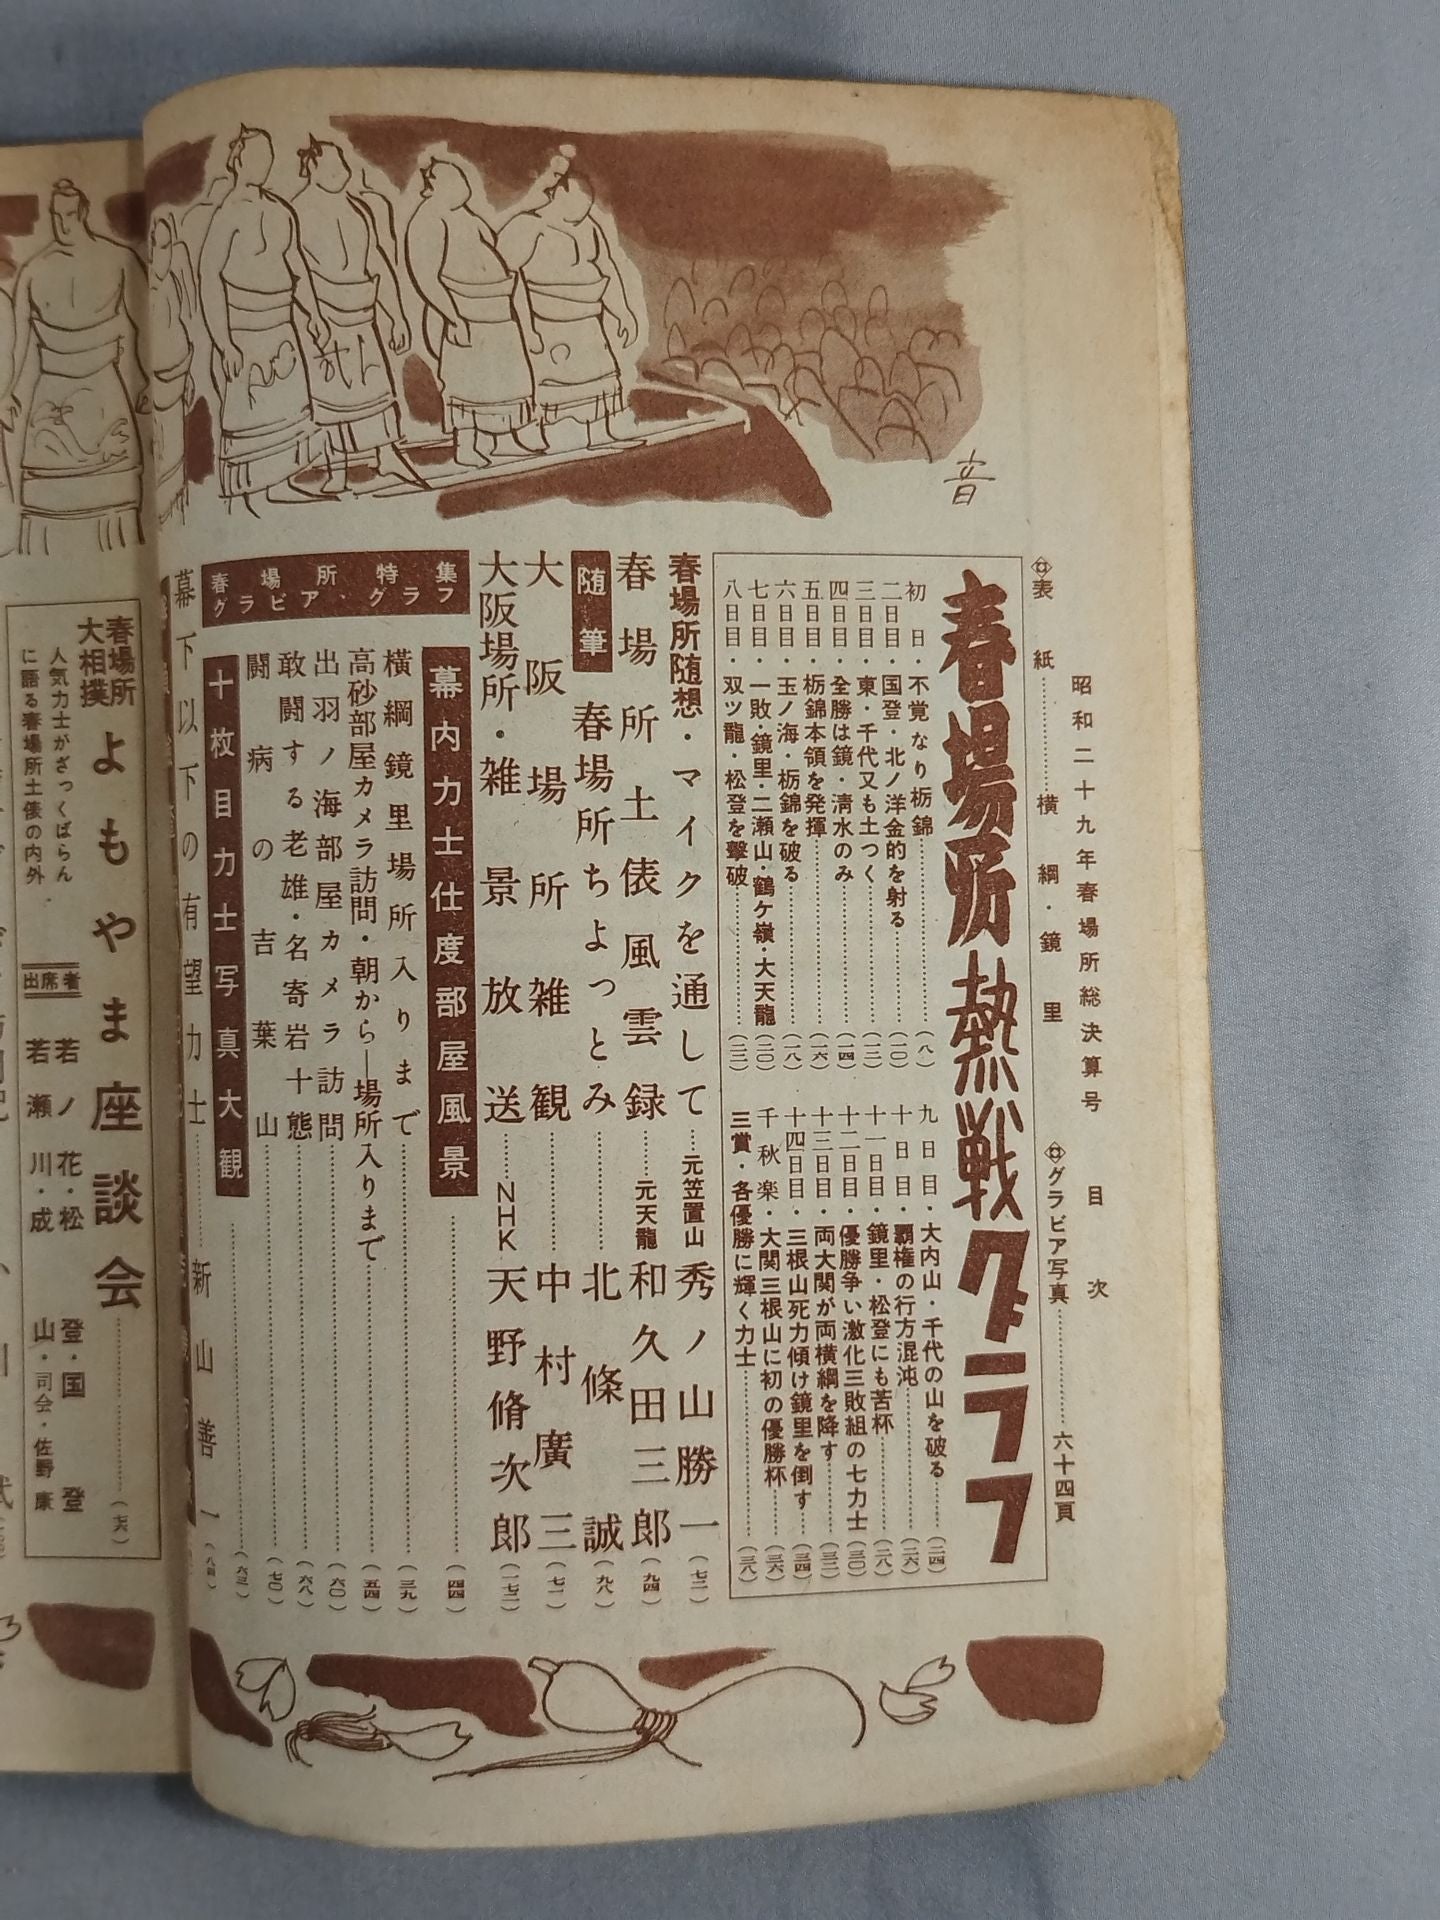 昭和二十九年春場所総決算号 目次
表紙……横綱・鏡里
グラビア写真……六十四頁
春場所熱戦グラフ
初日・不覚なり栃錦……(八)
二日目・国登・北ノ洋金的を射る……(一〇)
三日目・東・千代又も土つく……(一二)
四日目・全勝は鏡・清水のみ……(一四)
五日目・栃錦本領を発揮……(一六)
六日目・玉ノ海・栃錦を破る……(一八)
七日目・一敗・鏡里・二瀬山・鶴ケ嶺・大天龍(二〇)
八日目・双ツ龍・松登を撃破……(二二)
九日目・大内山・千代の山を破る……(二四)
十日目・覇権の行方混沌……(二六)
十一日目・鏡里・松登にも苦杯……(二八)
十二日目・優勝争い激化三敗組の七力士(三〇)
十三日目・両大関が両横綱を降す……(三二)
十四日目・三根山死力傾け鏡里を倒す(三四)
千秋楽・大関三根山に初の優勝杯……(三六)
三賞・各優勝に輝く力士……(三八)
春場所随想・マイクを通して……元笠置山 秀ノ山勝一(七二)
春場所土俵風雲録……元天龍 和久田三郎(九四)
随筆 春場所ちよっとみ……北條誠(九八)
大阪場所雑観……中村廣三(七一)
大阪場所・雑景放送……NHK 天野脩次郎(一七二)
春場所特集
グラビア・グラフ
幕内力士仕度部屋風景……(四四)
横綱鏡里場所入りまで……(三九)
高砂部屋カメラ訪問・朝から―場所入りまで……(五四)
出羽ノ海部屋カメラ訪問……(六〇)
敢闘する老雄・名寄岩十態……(六八)
闘病の吉葉山……(七〇)
十枚目力士写真大観……(六三)
幕下以下の有望力士……新山善一(八四)
春場所
大相撲
よもやま座談会……(七六)
人気力士がざっくばらん
に語る春場所土俵の内外・
出席者
若ノ花・松登・国登
若瀬川・成山・司会・佐野康